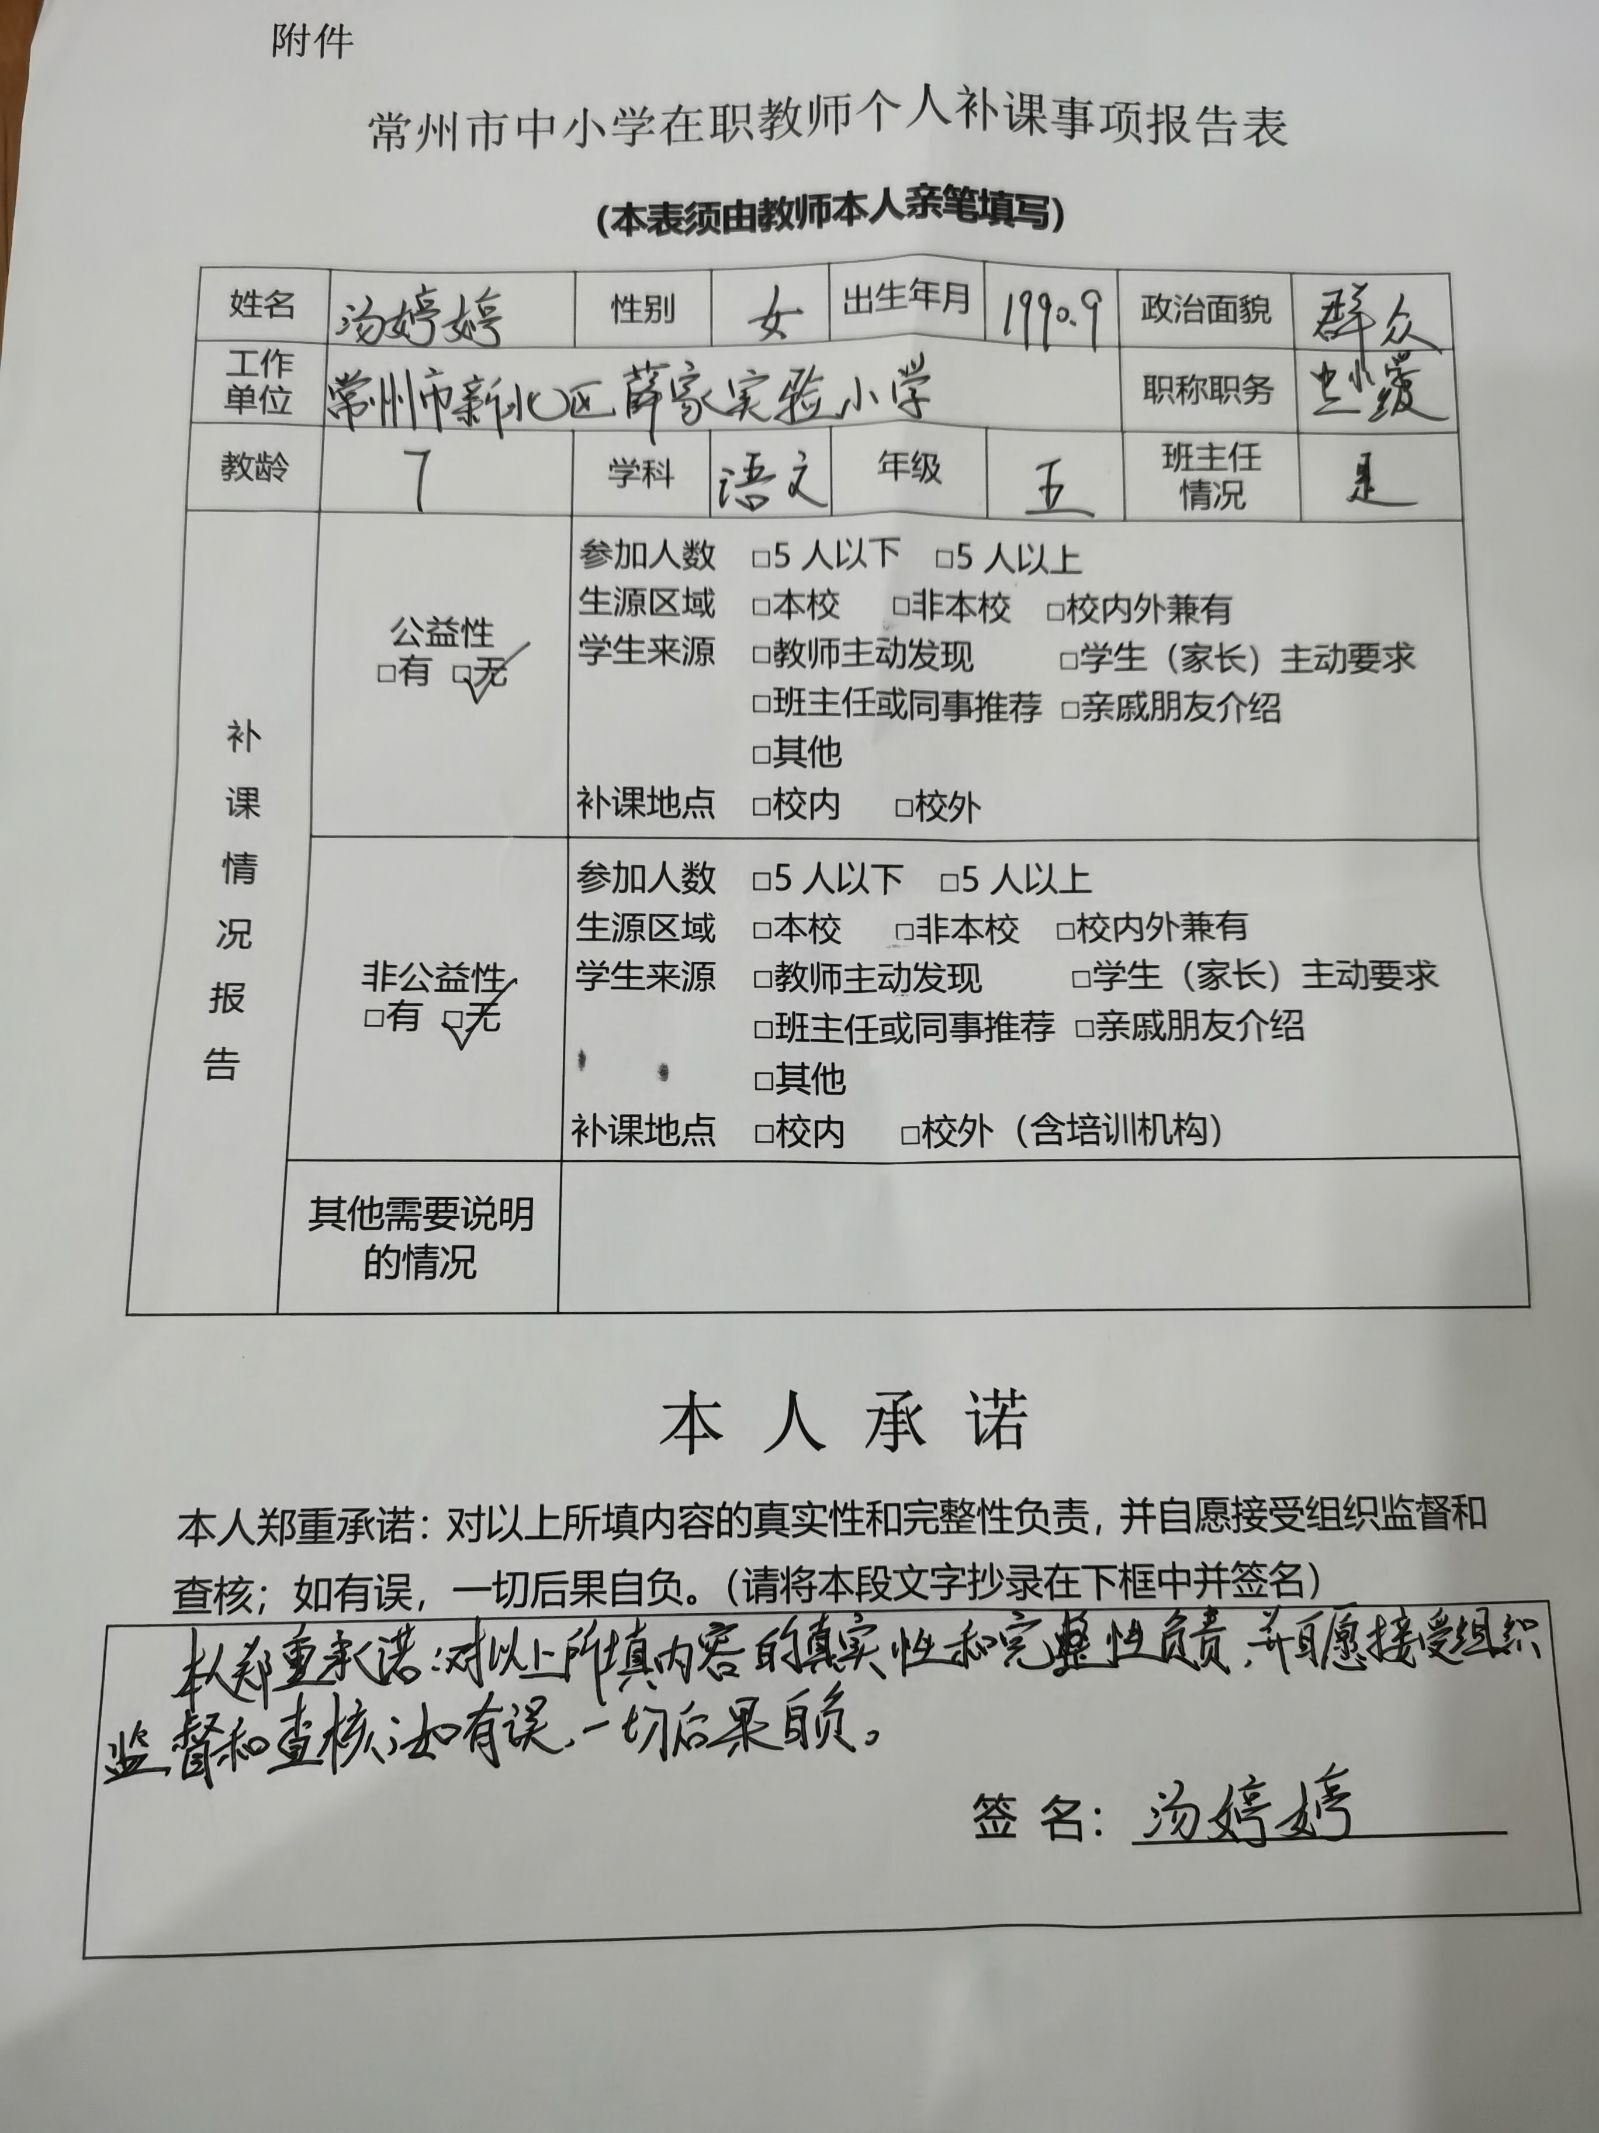 附件
常州市中小学在职教师个人补课事项报告表
（本表须由教师本人亲笔填写）
姓名 汤婷婷 性别 女 出生年月 1990.9 政治面貌 群众
工作单位 常州市新北区薛家实验小学 职称职务
教龄 7 学科 语文 年级 五 班主任情况 是
补课情况报告
公益性
□有 □无
参加人数 □5人以下 □5人以上
生源区域 □本校 □非本校 □校内外兼有
学生来源 □教师主动发现 □学生（家长）主动要求
□班主任或同事推荐 □亲戚朋友介绍
□其他
补课地点 □校内 □校外
非公益性
□有 □无
参加人数 □5人以下 □5人以上
生源区域 □本校 □非本校 □校内外兼有
学生来源 □教师主动发现 □学生（家长）主动要求
□班主任或同事推荐 □亲戚朋友介绍
□其他
补课地点 □校内 □校外（含培训机构）
其他需要说明
的情况
本人承诺
本人郑重承诺：对以上所填内容的真实性和完整性负责，并自愿接受组织监督和
查核；如有误，一切后果自负。（请将本段文字抄录在下框中并签名）
本人郑重承诺：对以上所填内容的真实性和完整性负责，并自愿接受组织
监督和查核；如有误，一切后果自负。
签 名：汤婷婷